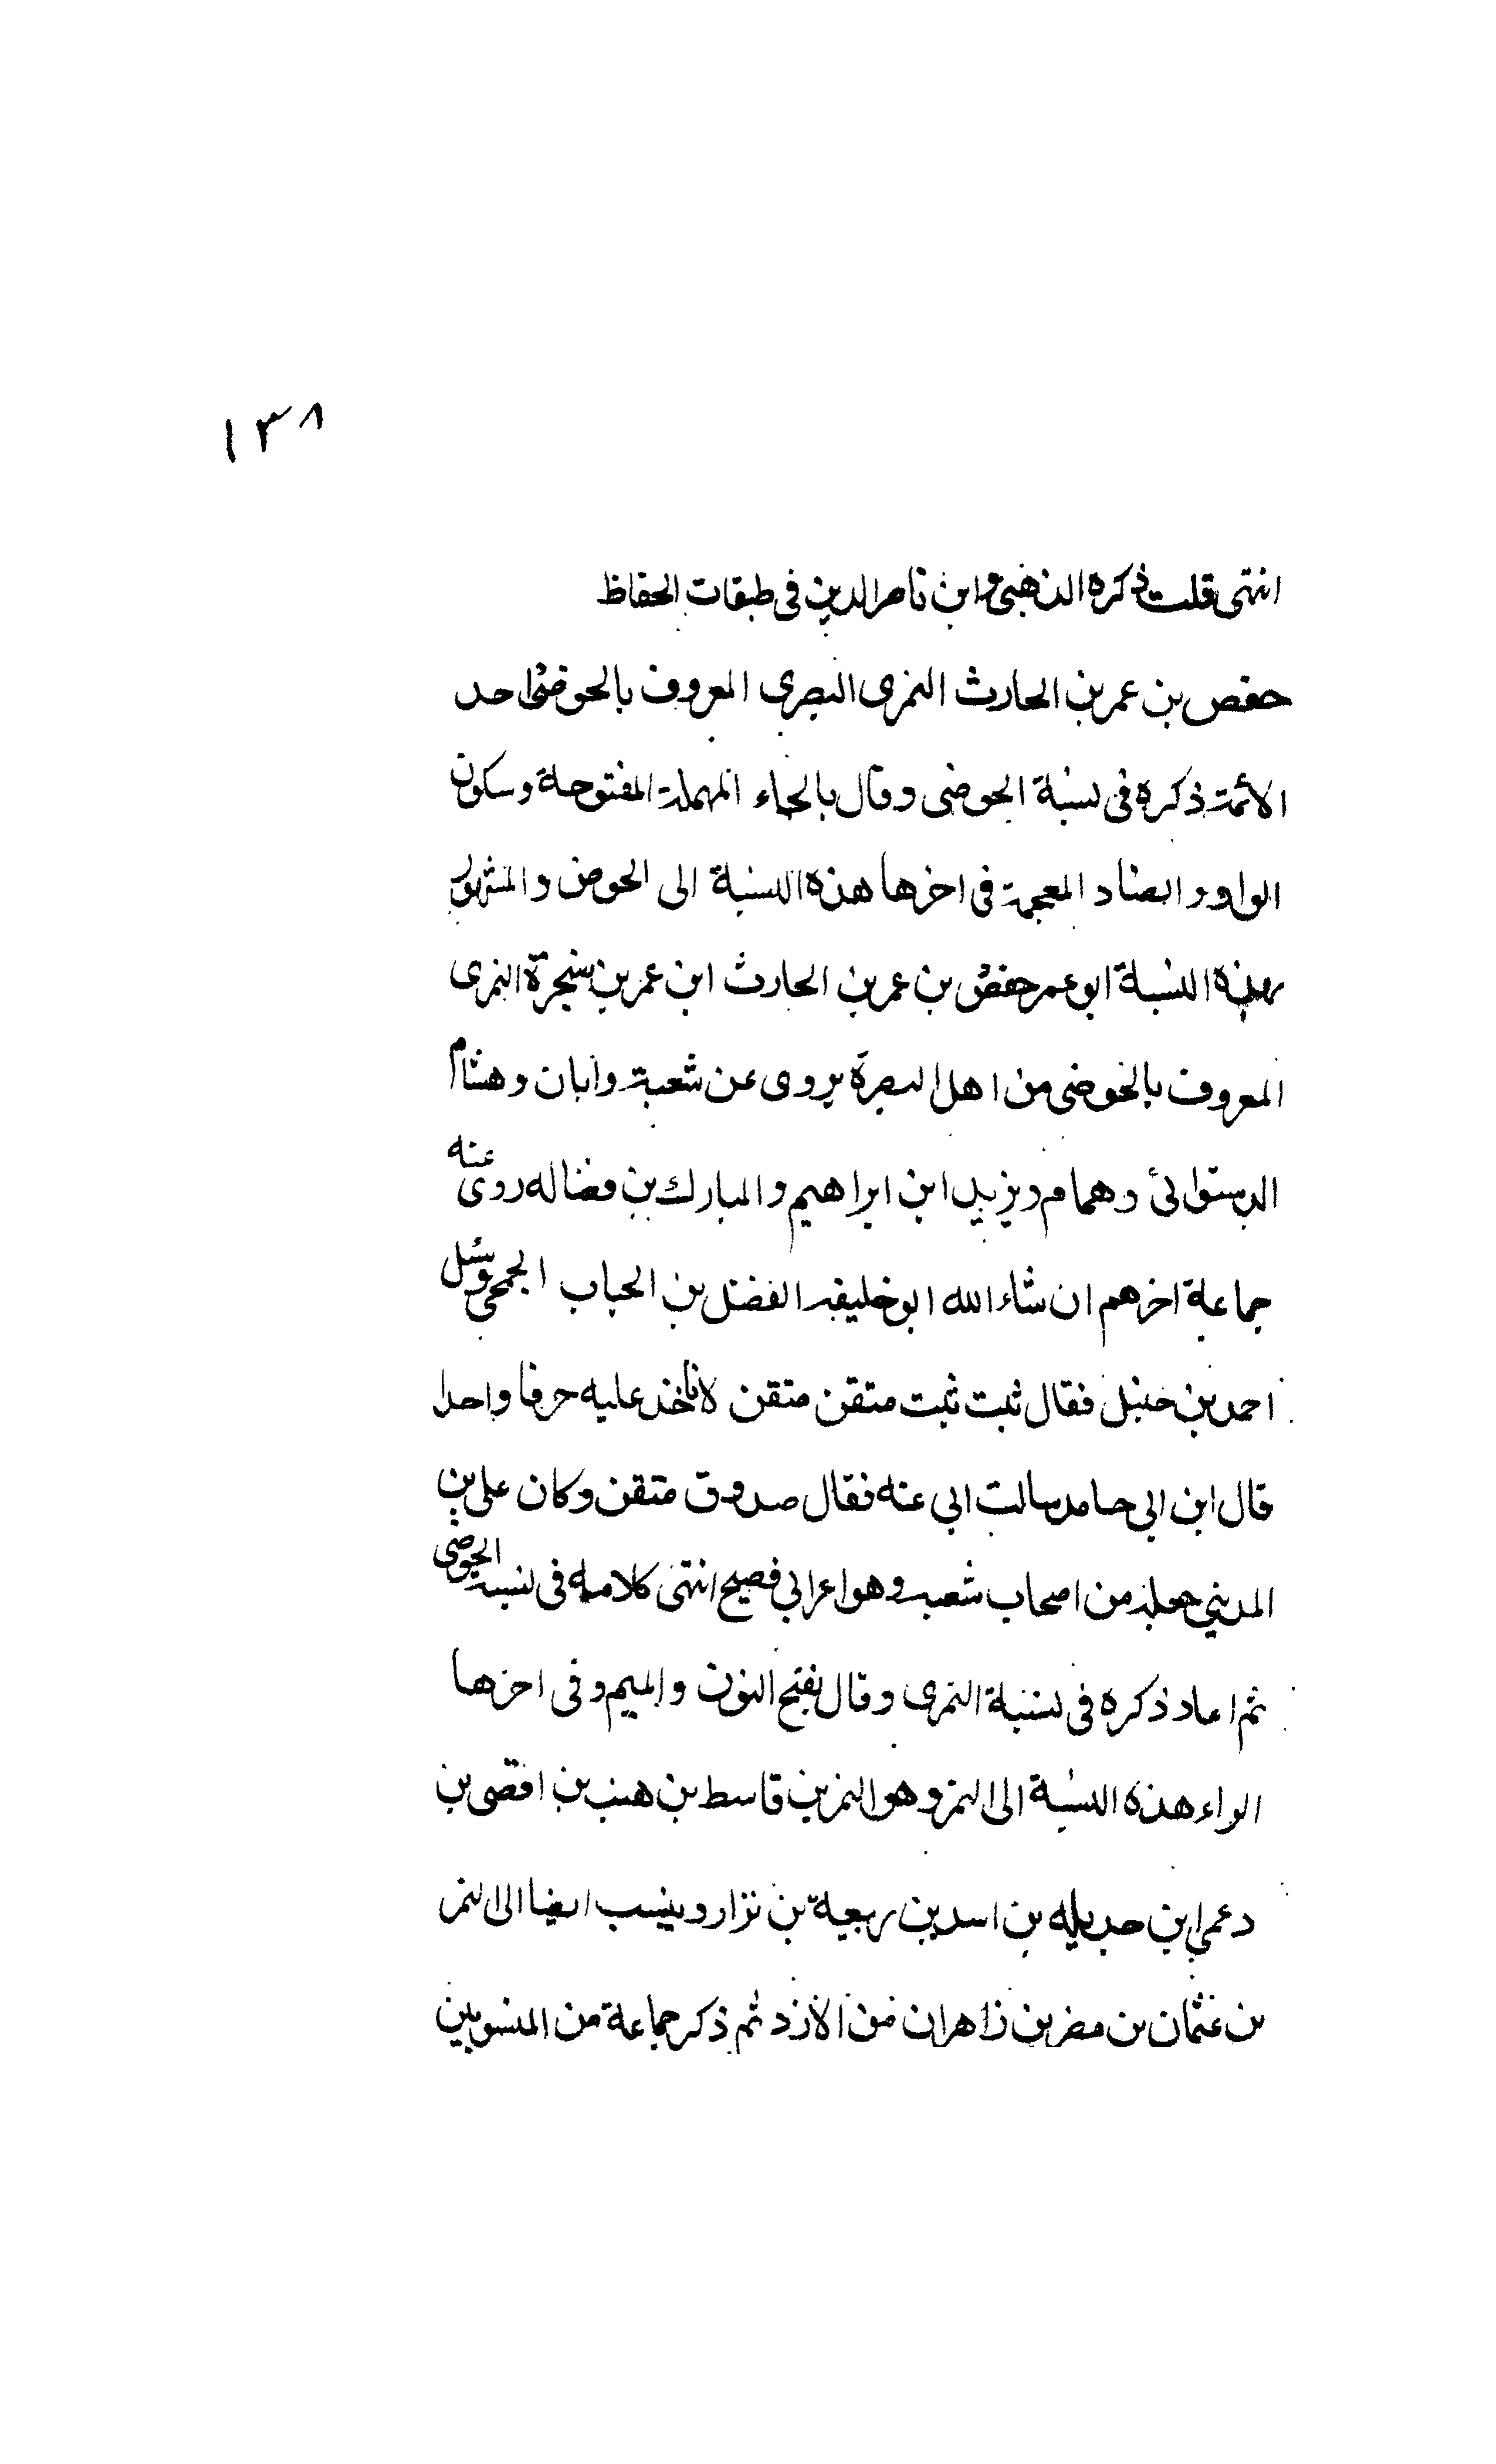 ١٣٨
انتهى قلت ذكره الذهبي وابن ناصر الدين في طبقات الحفاظ
حفص بن عمر بن الحارث النمرى البصرى المعروف بالحوضى احد
الائمة ذكره في نسبة الحوضى وقال بالحاء المهملة المفتوحة وسكون
الواو والضاد المعجمة في اخرها هذه النسبة الى الحوض والمشهور
بهذه النسبة ابو عمر حفص بن عمر بن الحارث ابن عمر بن سخبرة النمرى
المعروف بالحوضى من اهل البصرة يروى عن شعبة وابان وهشام
الدستوائى وهمام ويزيد ابن ابراهيم والمبارك بن فضاله روى عنه
جماعة اخرهم ان شاء الله ابو خليفه الفضل بن الحباب الجمحى وسئل
احمد بن حنبل فقال ثبت ثبت متقن متقن لا تاخذ عليه حرفا واحدا
قال ابن ابي حامد سالت ابي عنه فقال صدوق متقن وكان على بن
المديني من اصحاب شعبه وهو اعرابي فصيح انتهى كلامه في نسبة الحوضى
ثم اعاد ذكره في نسبة النمرى وقال بفتح النون والميم وفى اخرها
الراء هذه النسبة الى النمر وهو النمر بن قاسط بن هنب بن افصى بن
دعمى ابن جديله بن اسد بن ربيعة بن نزار وينسب ايضا الى النمر
بن عثمان بن مضر بن زاهران من الازد ثم ذكر جماعة من المنسوبين